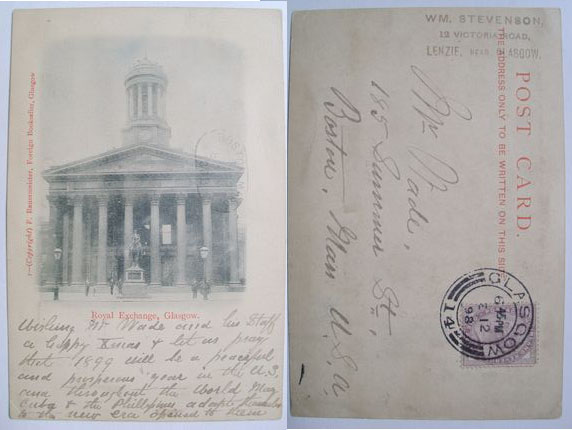 1—(Copyright) F. Bauermeister, Foreign Bookseller, Glasgow
Royal Exchange, Glasgow.
Wishing Mr Wade and his Staff
a Happy Xmas & let us pray
that 1899 will be a peaceful
and prosperous year in the U.S.
and throughout the World May
Cuba & the Phillipines adapt themselves
to the new era opened to them
WM. STEVENSON,
12 VICTORIA ROAD,
LENZIE, NEAR GLASGOW.
POST CARD.
THE ADDRESS ONLY TO BE WRITTEN ON THIS SIDE
Mr Wade,
185 Summer St.,
Boston, Mass U.S.A.
GLASGOW
2 12
98
14